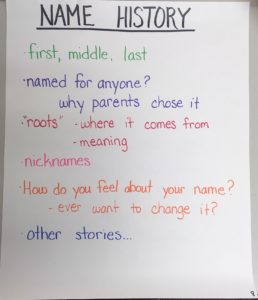 NAME HISTORY
·first, middle, last
·named for anyone?
why parents chose it
·"roots" ·where it comes from
-meaning
·nicknames
·How do you feel about your name?
-ever want to change it?
·other stories...